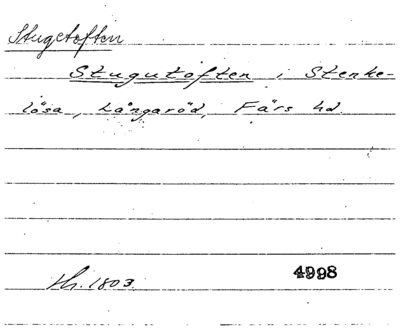 Stugetoften
Stugutoften i Stenke-
lösa, Långaröd, Färs hd.
Hr. 1803.
4998